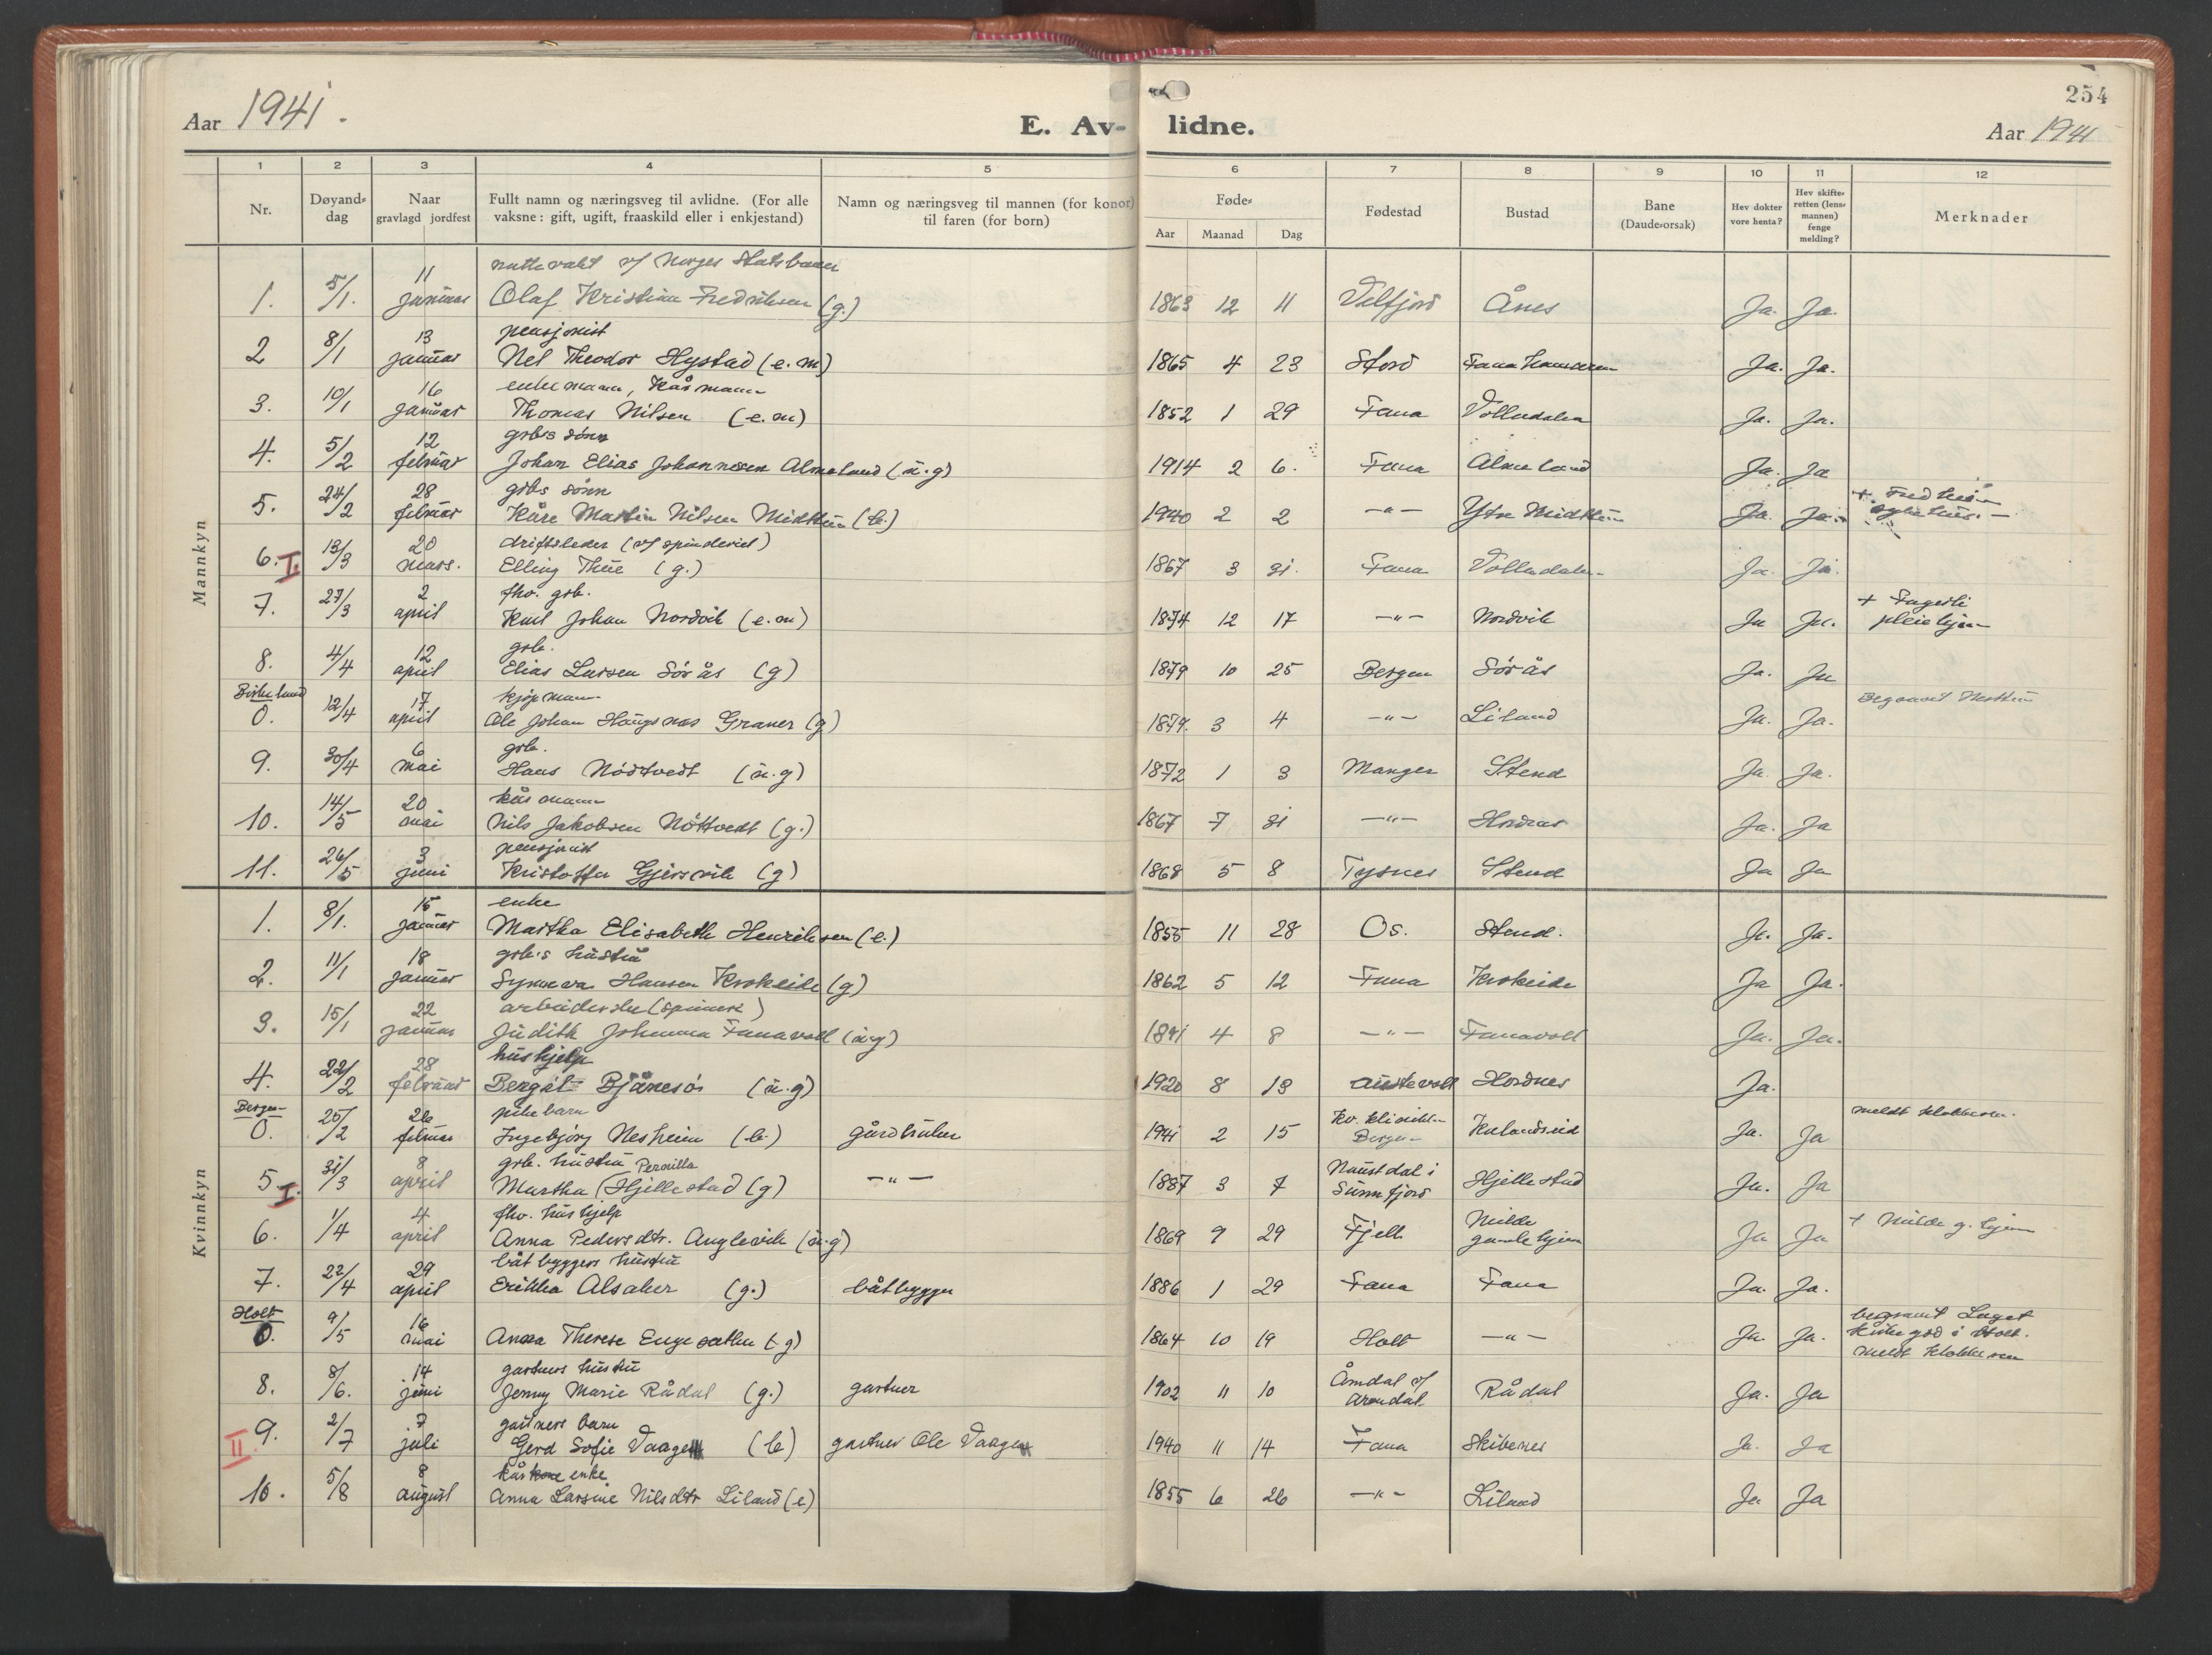 254
Aar 1941.
E. Av- lidne.
Aar 1941
1 2 3 4 5 6 7 8 9 10 11 12
Nr.
Døyand-dag
Naar gravlagd jordfest
Fullt namn og næringsveg til avlidne. (For alle
vaksne: gift, ugift, fraaskild eller i enkjestand)
Namn og næringsveg til mannen (for konor)
til faren (for born)
Føde-
Aar Maanad Dag
Fødestad
Bustad
Bane
(Daude-orsak)
Hev dokter
vore henta?
Hev skifte-
retten (lens-
mannen)
fenge
melding?
Merknader
Mannkyn
11 nattevakt v/ Norges Statsbaner
1. 5/1. januar Olaf Kristian Fredriksen (g.) 1863 12 11 Velfjord Ånes Ja. Ja.
13 pensjonist
2 8/1 januar Nel Theodor Hystad (e.m) 1865 4 23 Stord Fana Ja. Ja.
16 enkemann, kårmann
3. 10/1 januar Thomas Nilsen (e.m) 1852 1 29 Fana Volludalen Ja. Ja.
12 grb's sønn
4. 5/2 februar Johan Elias Johannesen Almeland (u.g) 1914 2 6. Fana Almeland Ja. Ja
28 grbs sønn
5. 24/2 februar Kåre Martin Nilsen Midttun (b.) 1940 2 2 -"- Ytre Midttun Ja. Ja.
20 driftsleder (v/ spinderiet)
6. I. 13/3 mars. Elling Thue (g.) 1867 3 31. Fana Ja. Ja.
2 fhv. grb.
7. 27/3 april Karl Johan Nordvik (e.m) 1874 12 17 -"- Nordvik Ja Ja. + Fagerli
pleiehjem
12 grb.
8. 4/4 april Elias Larsen Sørås (g) 1879 10 25 Bergen Sørås Ja. Ja
Birkeland 17 kjøpmann
0. 12/4 april Ole Johan Haugsnes Graner (g) 1879. 3 4 -"- Liland Ja. Ja. Begravet Nesttun
6 grb.
9. 30/4 mai Hans Nøttvedt (u.g) 1872 1 3 Manger Stend Ja. Ja.
20 kårmann
10. 14/5 mai Nils Jakobsen Nøttvedt (g.) 1867 7 31 -"- Hordnes Ja. Ja
3 pensjonist
11. 26/5 juni Kristoffer Gjersvik (g) 1868 5 8 Tysnes Stend Ja Ja
Kvinnkyn
15 enke
1. 8/1. januar Martha Elisabeth Henriksen (e.) 1855 11 28 Os. Stend. Ja. Ja.
18 grb's hustru
2. 11/1 januar Synneva Hansen Krokeide (g) 1862 5 12 Fana Krokeide Ja Ja.
22 arbeiderske (spinneri)
3. 15/1 januar Judith Johanna Fanavoll (u.g) 1891 4 8 -"- Fanavoll Ja. Ja.
28 hushjelp
4. 22/2 februar Bergit Bjånesøs (u.g) 1920 8 13 Austevoll Hordnes Ja.
Bergen 26 pikebarn
0. 25/2 februar Ingebjørg Nesheim (b.) gårdbruker 1941 2 15 Kv. klinikken
Bergen Kalandseid Ja. Ja meldt klokkeren.
8 grb. hustru Pernilla
5 I. 31/3 april Martha (Hjellestad (g) -"- 1887 3 7 Naustdal i
Sunnfjord Hjellestad Ja. Ja
4 fhv. hushjelp
6. 1/4 april Anna Pedersdtr. Anglevik (u.g) 1869 9 29 Fjell Milde
gamlehjem Ja Ja + Milde g. hjem
29 båtbyggers hustru
7. 22/4 april Erikka Alsaker (g.) båtbygger 1886 1 29 Fana Fana Ja. Ja.
Holt 16
0. 9/5 mai Anna Therese (g) 1864 10 19 Holt -"- Ja. Ja. begravet Laget
kirkegård i Holt.
meldt klokkeren
14 gartners hustru
8. 8/6. juni Jenny Marie Rådal (g.) gartner 1902 11 10 Åmdal v/
Arendal Rådal Ja. Ja
7 gartners barn
II 9. 2/7 juli Gerd Sofie Vaage (b) gartner Ole Vaage 1940 11 14 Fana Skibenes Ja. Ja
8 kårkone enke
10. 5/8 august Anna Larsine Nilsdtr Liland (e) 1855 6 26 -"- Liland Ja Ja